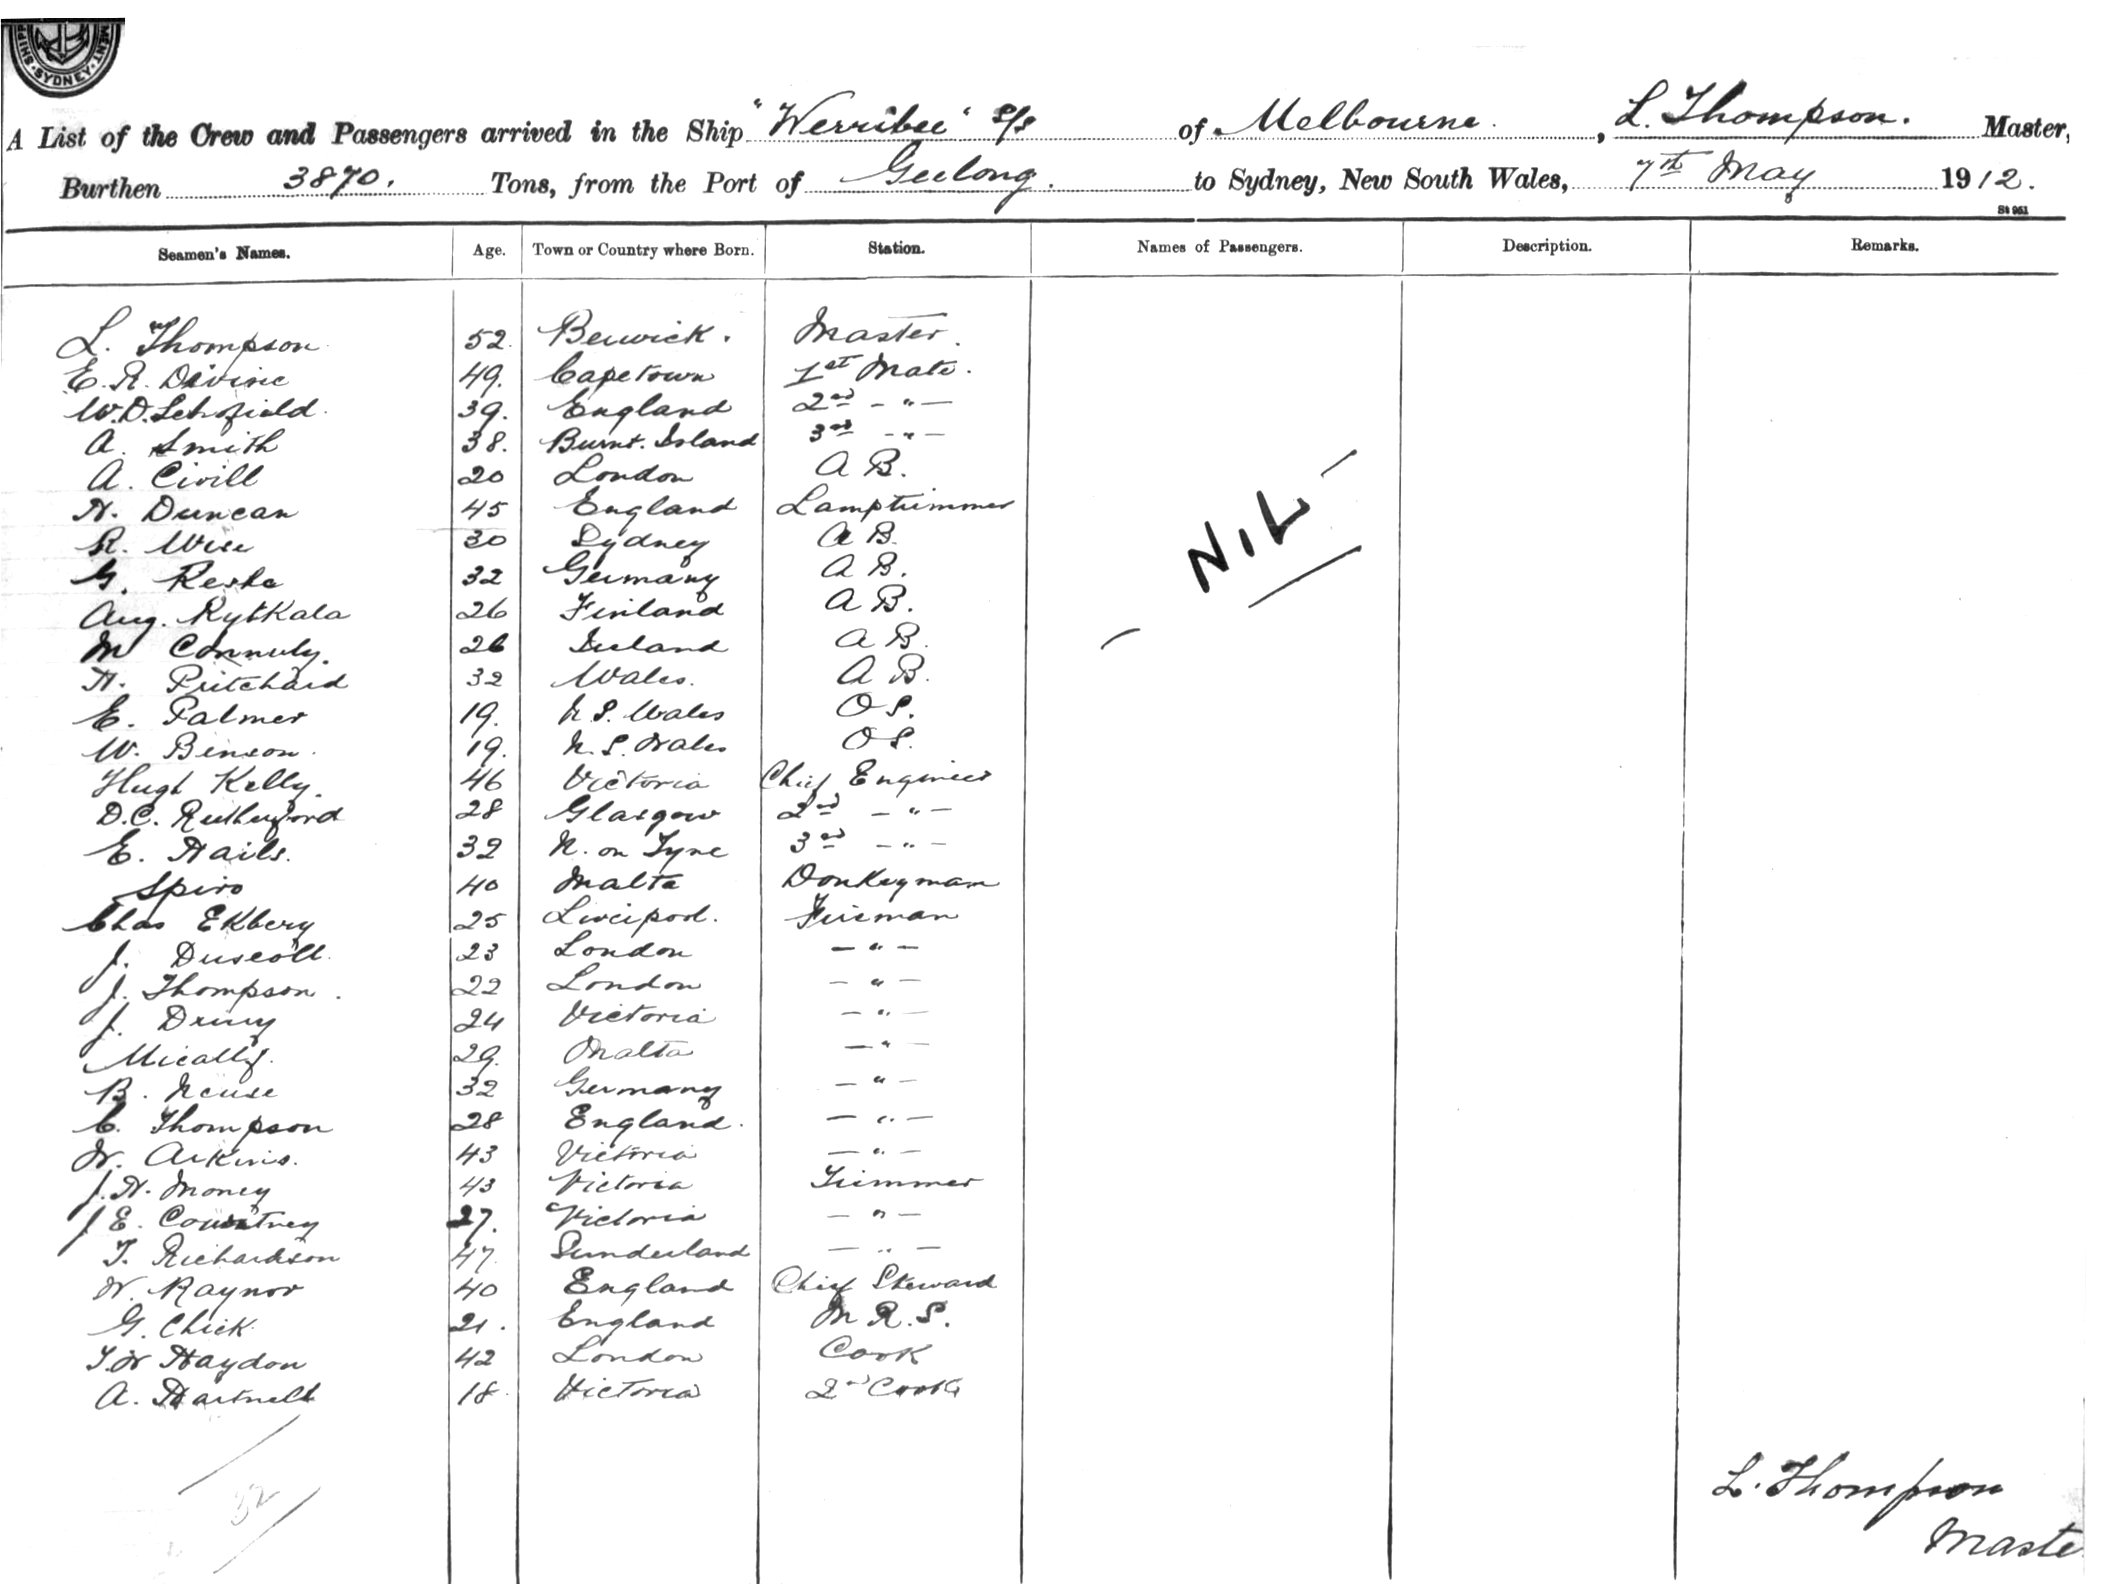 SHIPP SYDNEY MENT
A List of the Crew and Passengers arrived in the Ship "Werribee" S/S of Melbourne. , L. Thompson. Master,
Burthen 3870. Tons, from the Port of Geelong. to Sydney, New South Wales, 7th May 1912.
St 951
Seamen's Names. Age. Town or Country where Born. Station. Names of Passengers. Description. Remarks.
L. Thompson 52. Berwick. Master.
E. R. Divine 49. Capetown 1st Mate.
W. D. Schofield. 39. England 2nd - " -
A. Smith 38. Burnt. Island 3rd - " -
A. Civill 20 London A B.
H. Duncan 45 England Lamptrimmer
R. Wise 30 Sydney A B.
G. Reske 32 Germany A B.
Aug. Rytkala 26 Finland A B.
M Connuly. 26 Ireland A B.
H. Pritchard 32 Wales. A B.
E. Palmer 19. N. S. Wales O S.
W. Benson. 19. N. S. Wales O S.
Hugh Kelly. 46 Victoria Chief Engineer
D. C. Rutherford 28 Glasgow 2nd - " -
E. Hails. 32 N. on Tyne 3rd - " -
Spiro 40 Malta Donkeyman
Chas Ekbery 25 Liverpool. Fireman
J. Driscoll 23 London - " -
J. Thompson. 22 London - " -
J. Drury 24 Victoria - " -
Micallef. 29. Malta - " -
B. Neuse 32 Germany - " -
C. Thompson 28 England. - " -
W. Arkins. 43 Victoria - " -
J. H. Money 43 Victoria Trimmer
J E. Courtney 27. Victoria - " -
T. Richardson 47. Sunderland - " -
W. Raynor 40 England Chief Steward
G. Chick 21. England M. R. S.
T. W Haydon 42 London Cook
A. Hartnell 18. Victoria 2nd Cook
NIL
32
L. Thompson
Maste